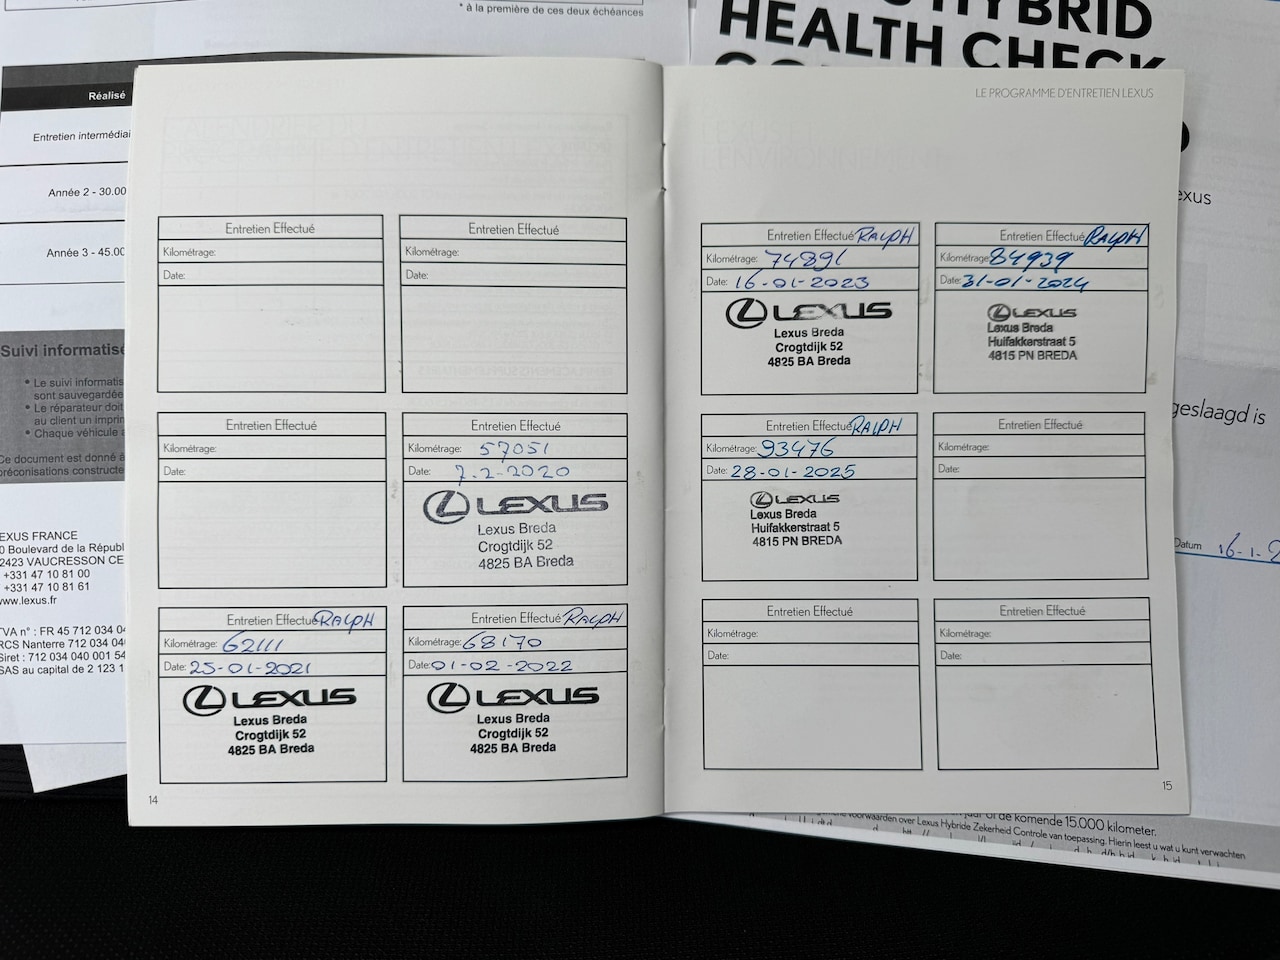 * à la première de ces deux échéances
HYBRID
HEALTH CHECK
Réalisé
Entretien intermédiai
Année 2 - 30.00
Année 3 - 45.00
Suivi informatisé
• Le suivi informatis
sont sauvegardée
• Le réparateur doit
au client un imprin
• Chaque véhicule a
Ce document est donné à
préconisations constructe
EXUS FRANCE
0 Boulevard de la Républ
2423 VAUCRESSON CE
+331 47 10 81 00
+331 47 10 81 61
www.lexus.fr
TVA n° : FR 45 712 034 04
RCS Nanterre 712 034 040
Siret : 712 034 040 001 54
SAS au capital de 2 123 1
Entretien Effectué
Kilométrage:
Date:
Entretien Effectué
Kilométrage:
Date:
Entretien Effectué
Kilométrage:
Date:
Entretien Effectué
Kilométrage: 57051
Date: 7-2-2020
LEXUS
Lexus Breda
Crogtdijk 52
4825 BA Breda
Entretien Effectué RALPH
Kilométrage: 62111
Date: 25-01-2021
LEXUS
Lexus Breda
Crogtdijk 52
4825 BA Breda
Entretien Effectué RALPH
Kilométrage: 68170
Date: 01-02-2022
LEXUS
Lexus Breda
Crogtdijk 52
4825 BA Breda
14
LE PROGRAMME D'ENTRETIEN LEXUS
Entretien Effectué RALPH
Kilométrage: 74891
Date: 16-01-2023
LEXUS
Lexus Breda
Crogtdijk 52
4825 BA Breda
Entretien Effectué RALPH
Kilométrage: 84939
Date: 31-01-2024
LEXUS
Lexus Breda
Huifakkerstraat 5
4815 PN BREDA
Entretien Effectué RALPH
Kilométrage: 93476
Date: 28-01-2025
LEXUS
Lexus Breda
Huifakkerstraat 5
4815 PN BREDA
Entretien Effectué
Kilométrage:
Date:
Entretien Effectué
Kilométrage:
Date:
Entretien Effectué
Kilométrage:
Date:
15
exus
geslaagd is
Datum 16-1-2
jaar of de komende 15.000 kilometer.
voorwaarden over Lexus Hybride Zekerheid Controle van toepassing. Hierin leest u wat u kunt verwachten